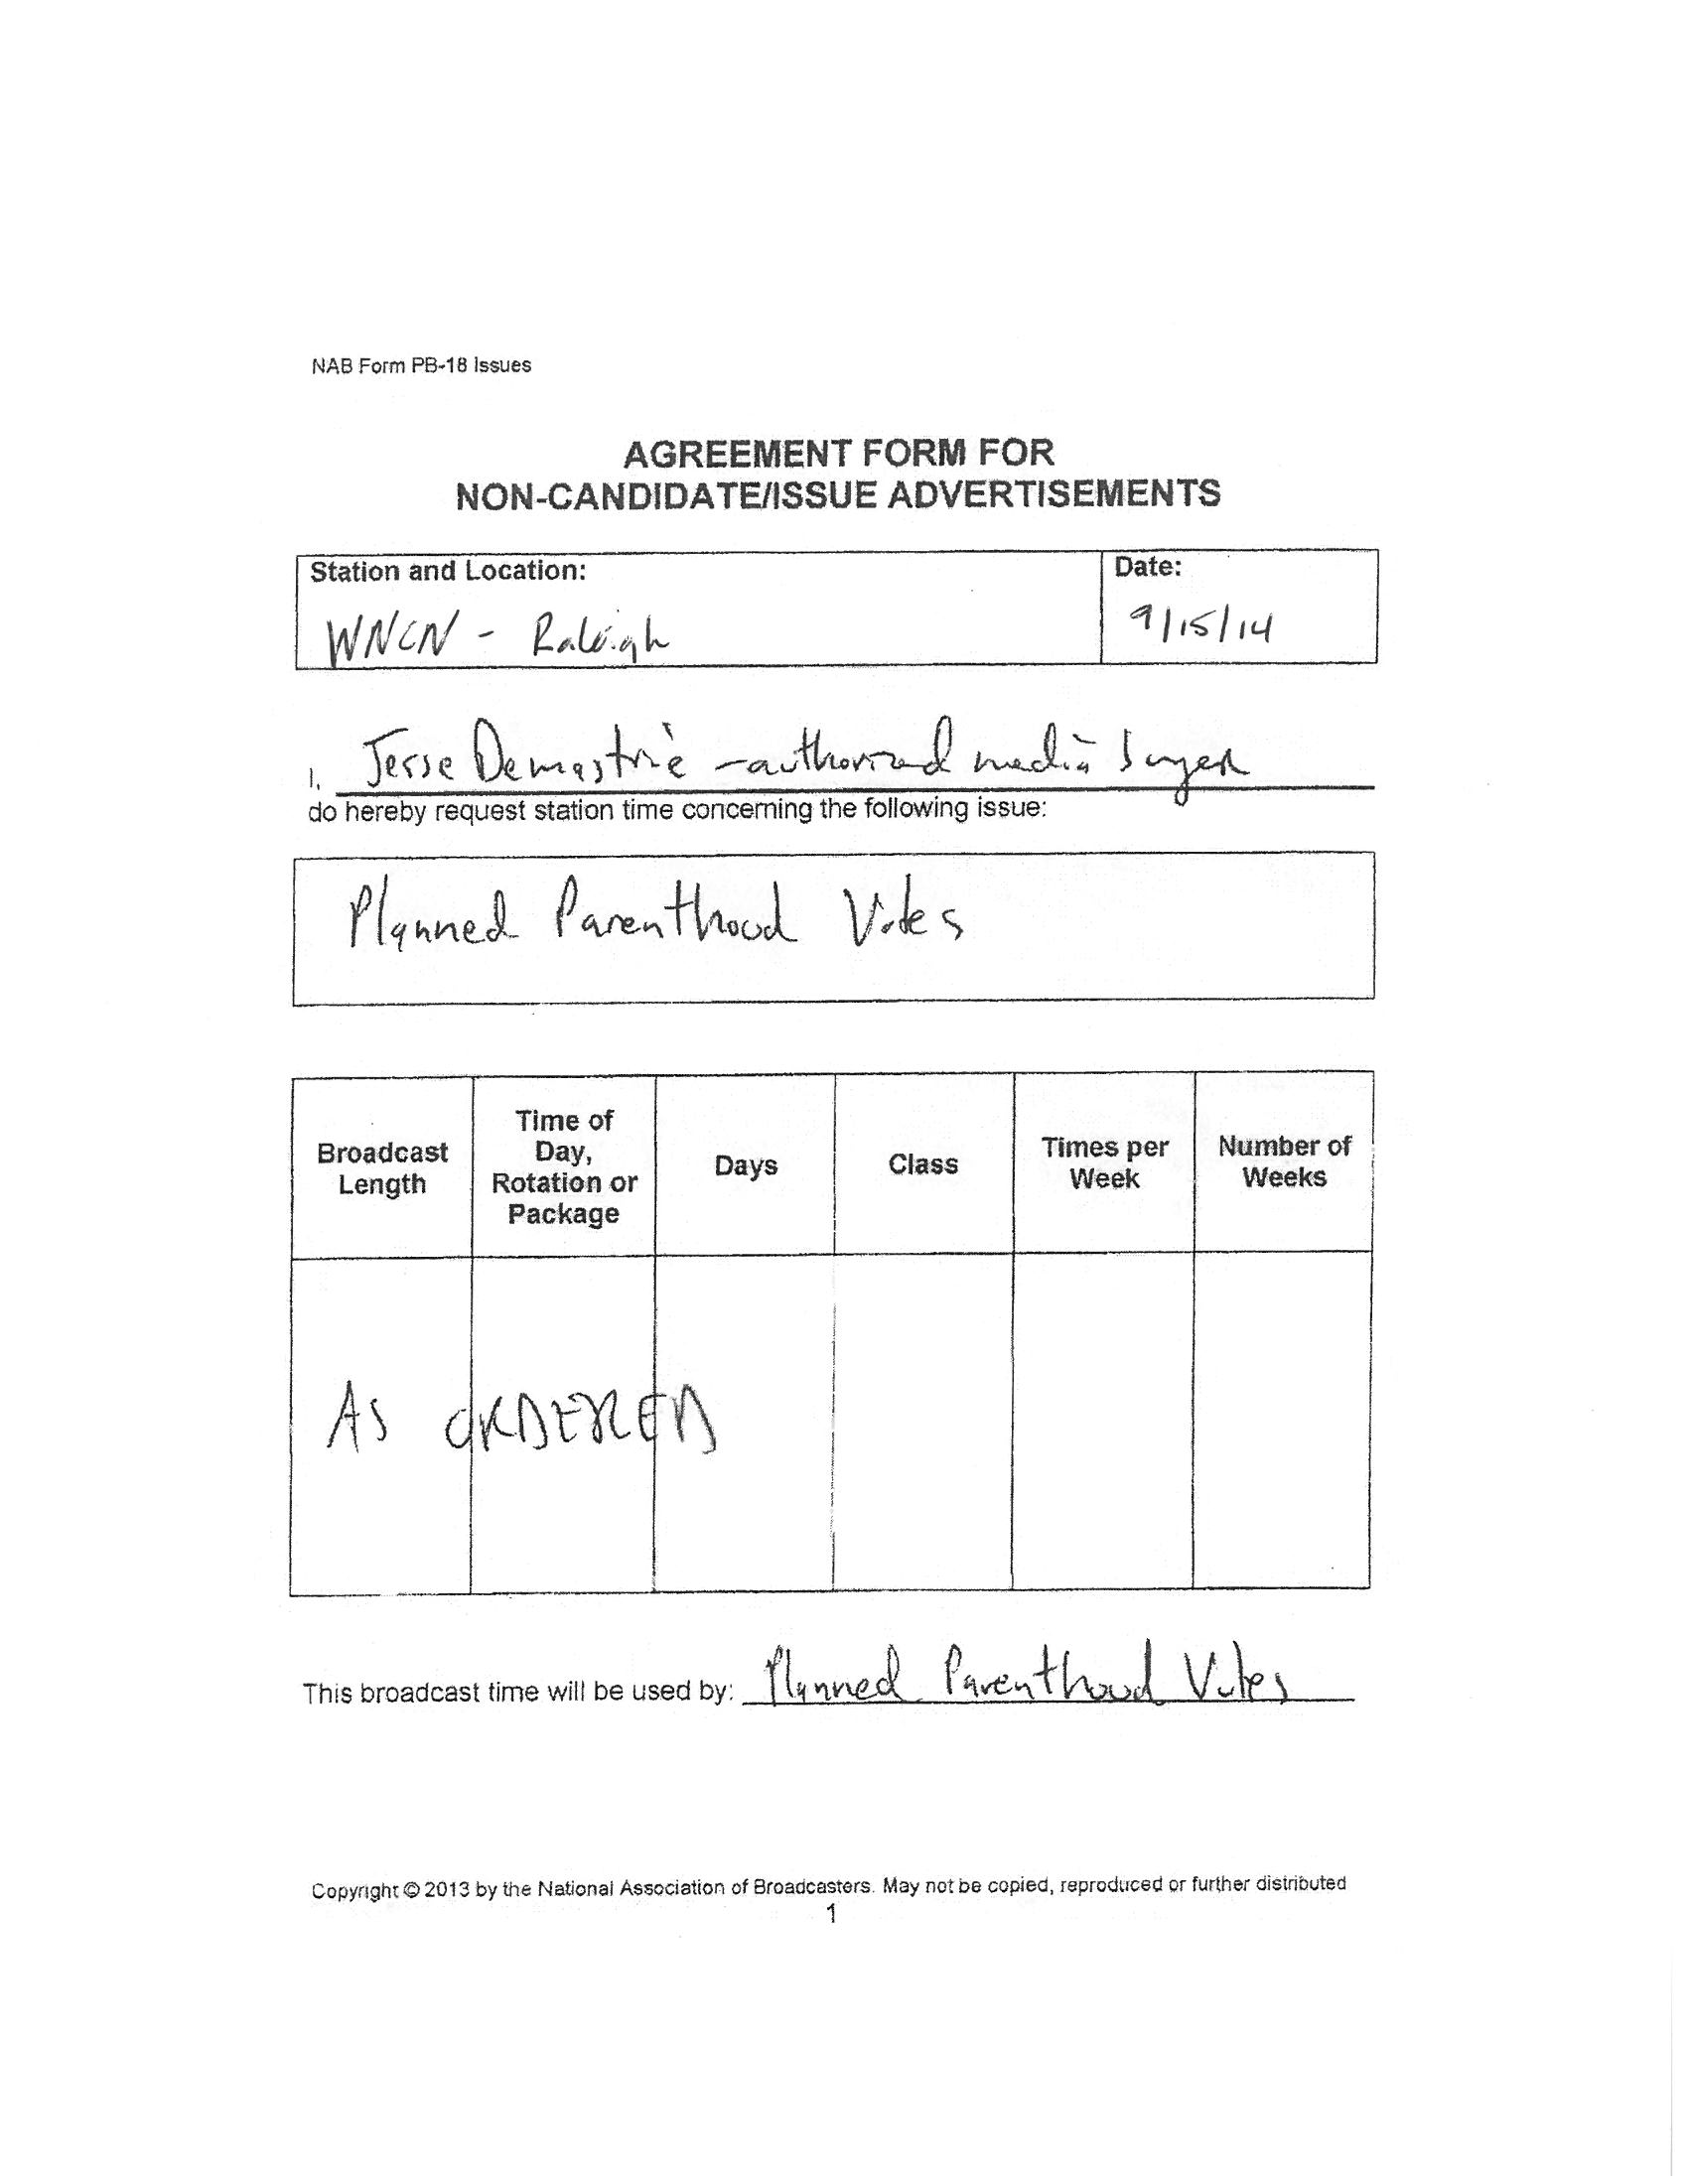 NAB Form PB-18 Issues
AGREEMENT FORM FOR
NON-CANDIDATE/ISSUE ADVERTISEMENTS
Station and Location:
Date:
WNCN - Raleigh
9/15/14
I, Jesse Demastrie - authorized media buyer
do hereby request station time concerning the following issue:
Planned Parenthood Votes
Broadcast
Length
Time of
Day,
Rotation or
Package
Days
Class
Times per
Week
Number of
Weeks
AS ORDERED
This broadcast time will be used by: Planned Parenthood Votes
Copyright © 2013 by the National Association of Broadcasters. May not be copied, reproduced or further distributed
1